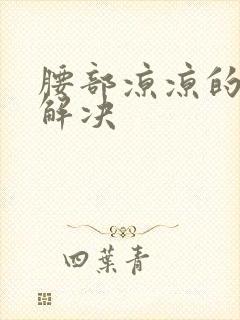 腰部凉凉的
解决
四葉青